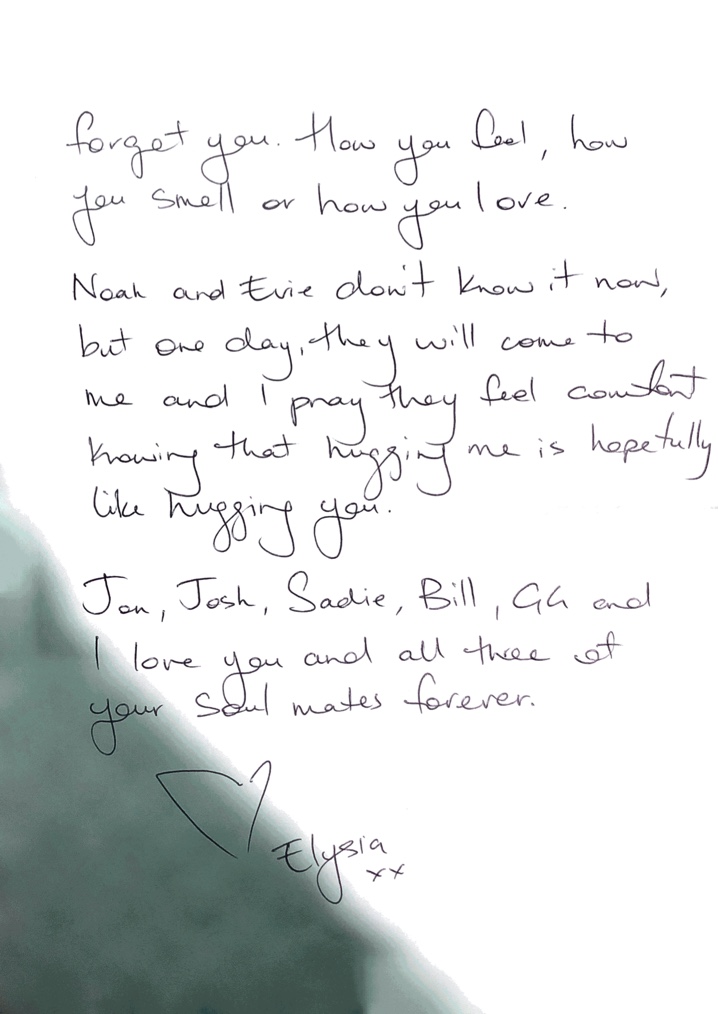 forget you. How you feel, how
you smell or how you love.
Noah and Evie don't know it now,
but one day, they will come to
me and I pray they feel comfort
knowing that hugging me is hopefully
like hugging you.
Jon, Josh, Sadie, Bill, GG and
I love you and all three of
your soul mates forever.
Elysia
xx